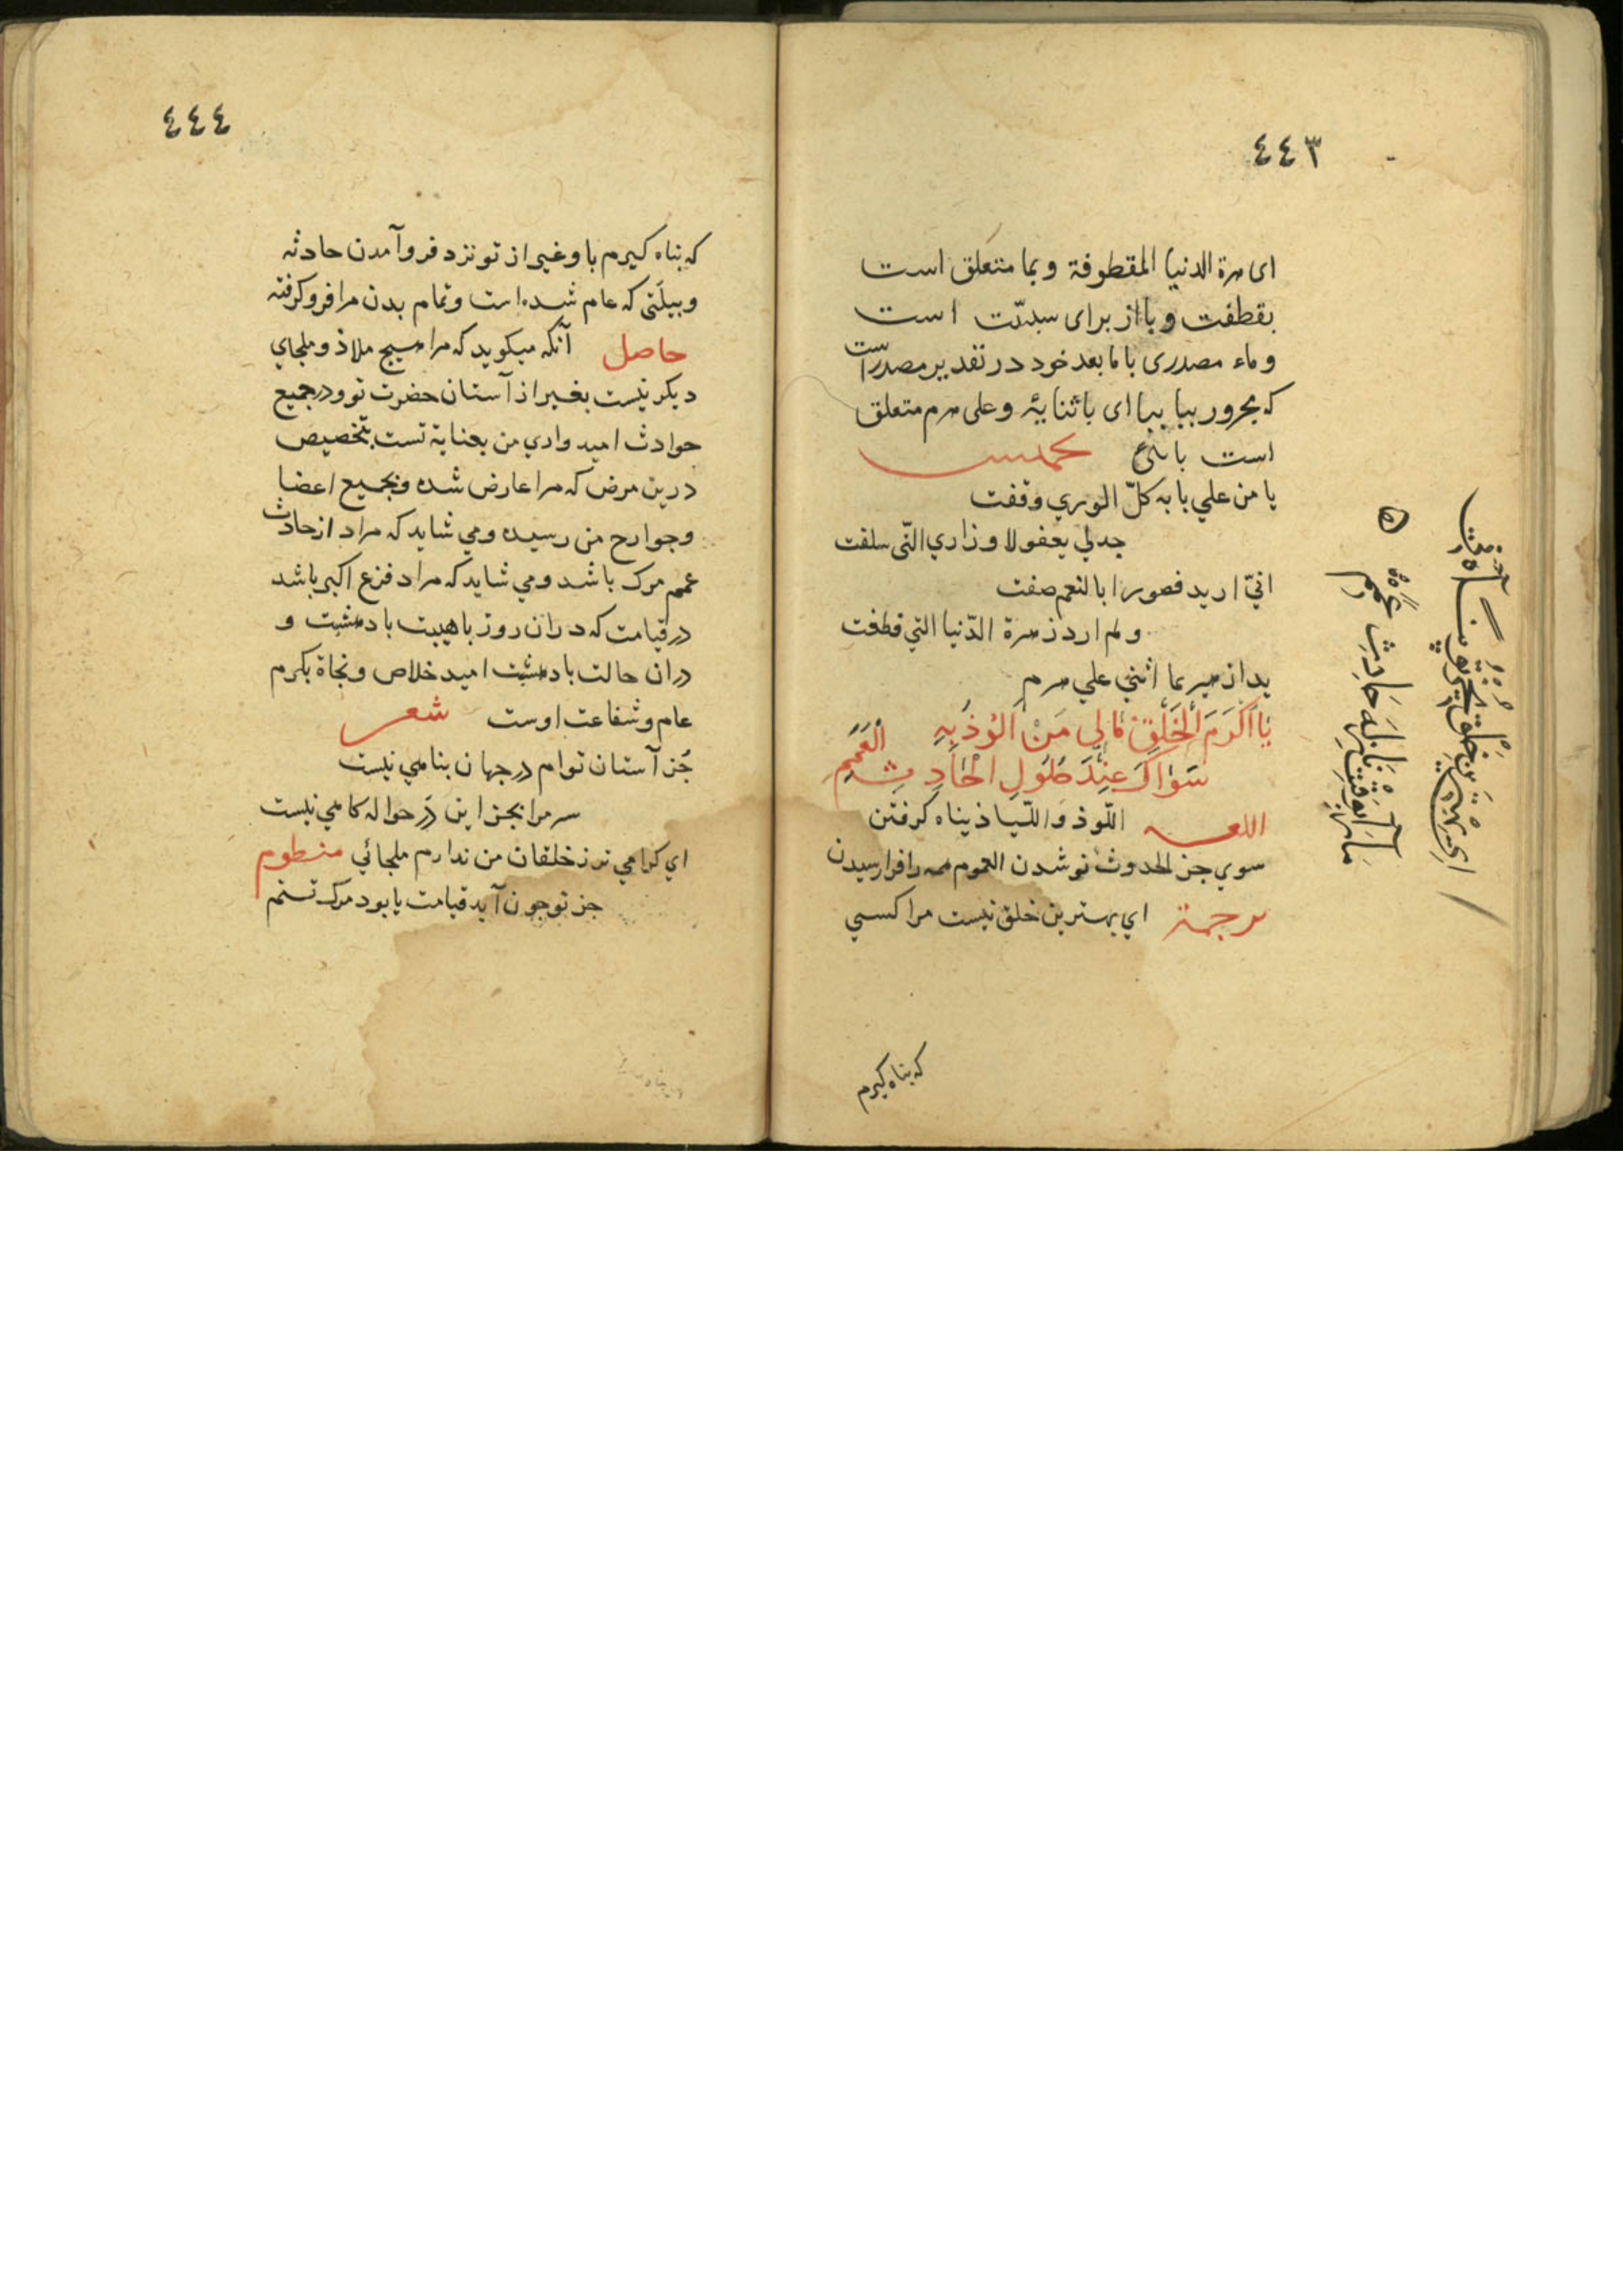 ٤٤٣
ای زهرة الدنیا المقطوفة وبما متعلق است
بقطفت و با از برای سببیّت است
وماء مصدری با مابعد خود در تقدیر مصدر است
که مجرور ببا ببا ای باثنایه وعلی هرم متعلق
است با
یا من علي بابه کلّ الوري وقفت
جدلي بعفو لاوزاري الّتی سلفت
انيّ اريد قصورا بالنعم صفت
ولم ارد زهرة الدّنیا التي قطفت
یدا زهیر بما اثني علي هرم
يَا اَكْرَمَ الْخَلْقِ مَالِي مَنْ اَلُوذُ بِهِ
سِوَاكَ عِنْدَ حُلُولِ الْحَادِثِ الْعَمِمِ
اللغه اللّوذ واللّیاذ پناه کرفتن
سوي جز الحدوث نو شدن العموم همه را فرا رسیدن
ترجمة اي بهترین خلق نیست مرا کسي
که پناه کیرم
٤٤٤
که پناه کیرم باو غیر از تو نزد فرو آمدن حادثه
وبیلّتی که عام شده است وتمام بدن مرا فرو کرفته
حاصل آنکه میکوید که مرا هیچ ملاذ وملجاي
دیکر نیست بغیر از آستان حضرت تو ودر جمیع
حوادث امیدواري من بعنایة تست بتخصیص
درین مرض که مرا عارض شده وبجمیع اعضا
وجوارح من رسیده ومي شاید که مراد از حادث
عمم مرک باشد ومي شاید که مراد فزع اکبر باشد
در قیامت که در ان روز با هیبت با دهشت و
دران حالت با دهشت امید خلاص ونجاة بکرم
عام وشفاعت اوست شعر
جُز آستان توام در جهان پناهي نیست
سر مرا بجز این دَر حواله کاهي نیست
اي کرامي تر ز خلقان من ندارم ملجائي منظوم
جز تو چون آید قیامت یا بود مرک تنم